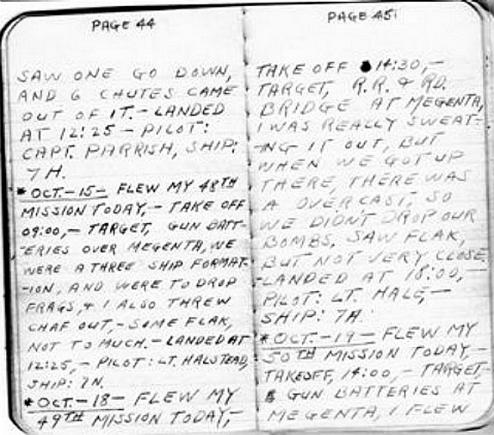 PAGE 44
SAW ONE GO DOWN,
AND 6 CHUTES CAME
OUT OF IT.- LANDED
AT 12:25 - PILOT:
CAPT. PARRISH, SHIP:
7H.
* OCT.-15- FLEW MY 48TH
MISSION TODAY,- TAKE OFF
09:00,- TARGET, GUN BATT-
-ERIES OVER MEGENTA, WE
WERE A THREE SHIP FORMAT-
-ION, AND WERE TO DROP
FRAGS, & I ALSO THREW
CHAF OUT,- SOME FLAK,
NOT TO MUCH.- LANDED AT
12:25,- PILOT: LT. HALSTEAD,
SHIP: 7N.
* OCT.-18- FLEW MY
49TH MISSION TODAY,-
PAGE 45
TAKE OFF 14:30,-
TARGET, R.R. & RD.
BRIDGE AT MEGENTA,
I WAS REALLY SWEAT-
-NG IT OUT, BUT
WHEN WE GOT UP
THERE, THERE WAS
A OVERCAST, SO
WE DIDN'T DROP OUR
BOMBS, SAW FLAK,
BUT NOT VERY CLOSE,
-LANDED AT 18:00,-
PILOT: LT. HALE,-
SHIP: 7A.
* OCT.-19- FLEW MY
50TH MISSION TODAY,-
TAKEOFF, 14:00,- TARGET-
GUN BATTERIES AT
MEGENTA, I FLEW